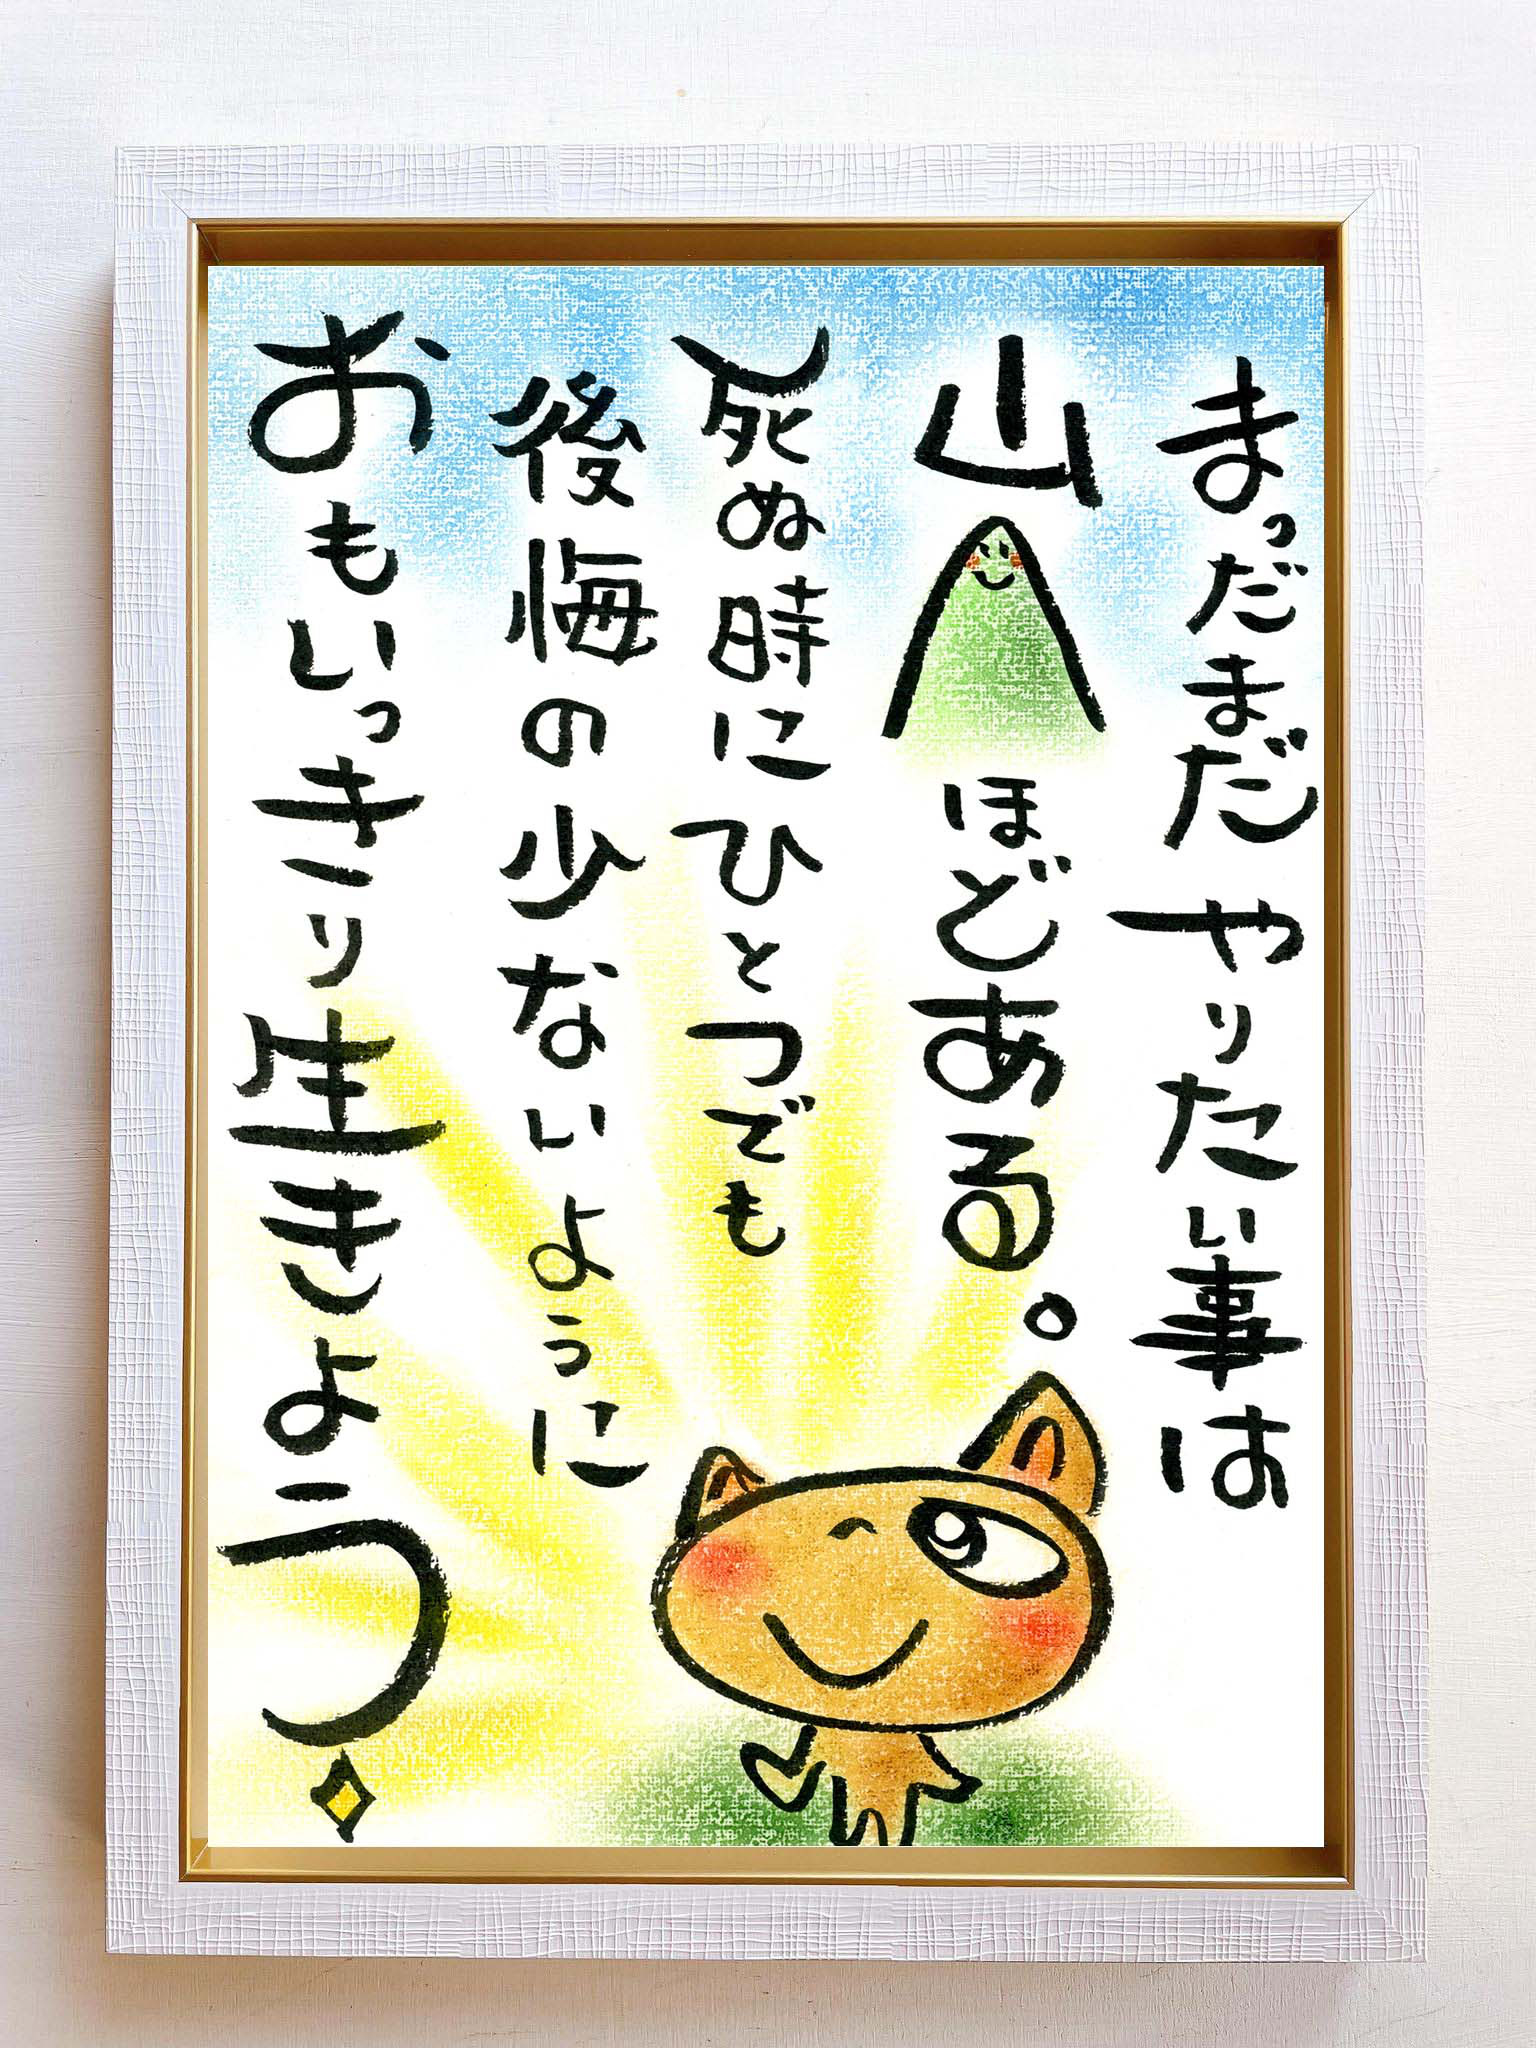 まっだまだやりたい事は
山ほどある。
死ぬ時にひとつでも
後悔の少ないように
おもいっきり生きよう